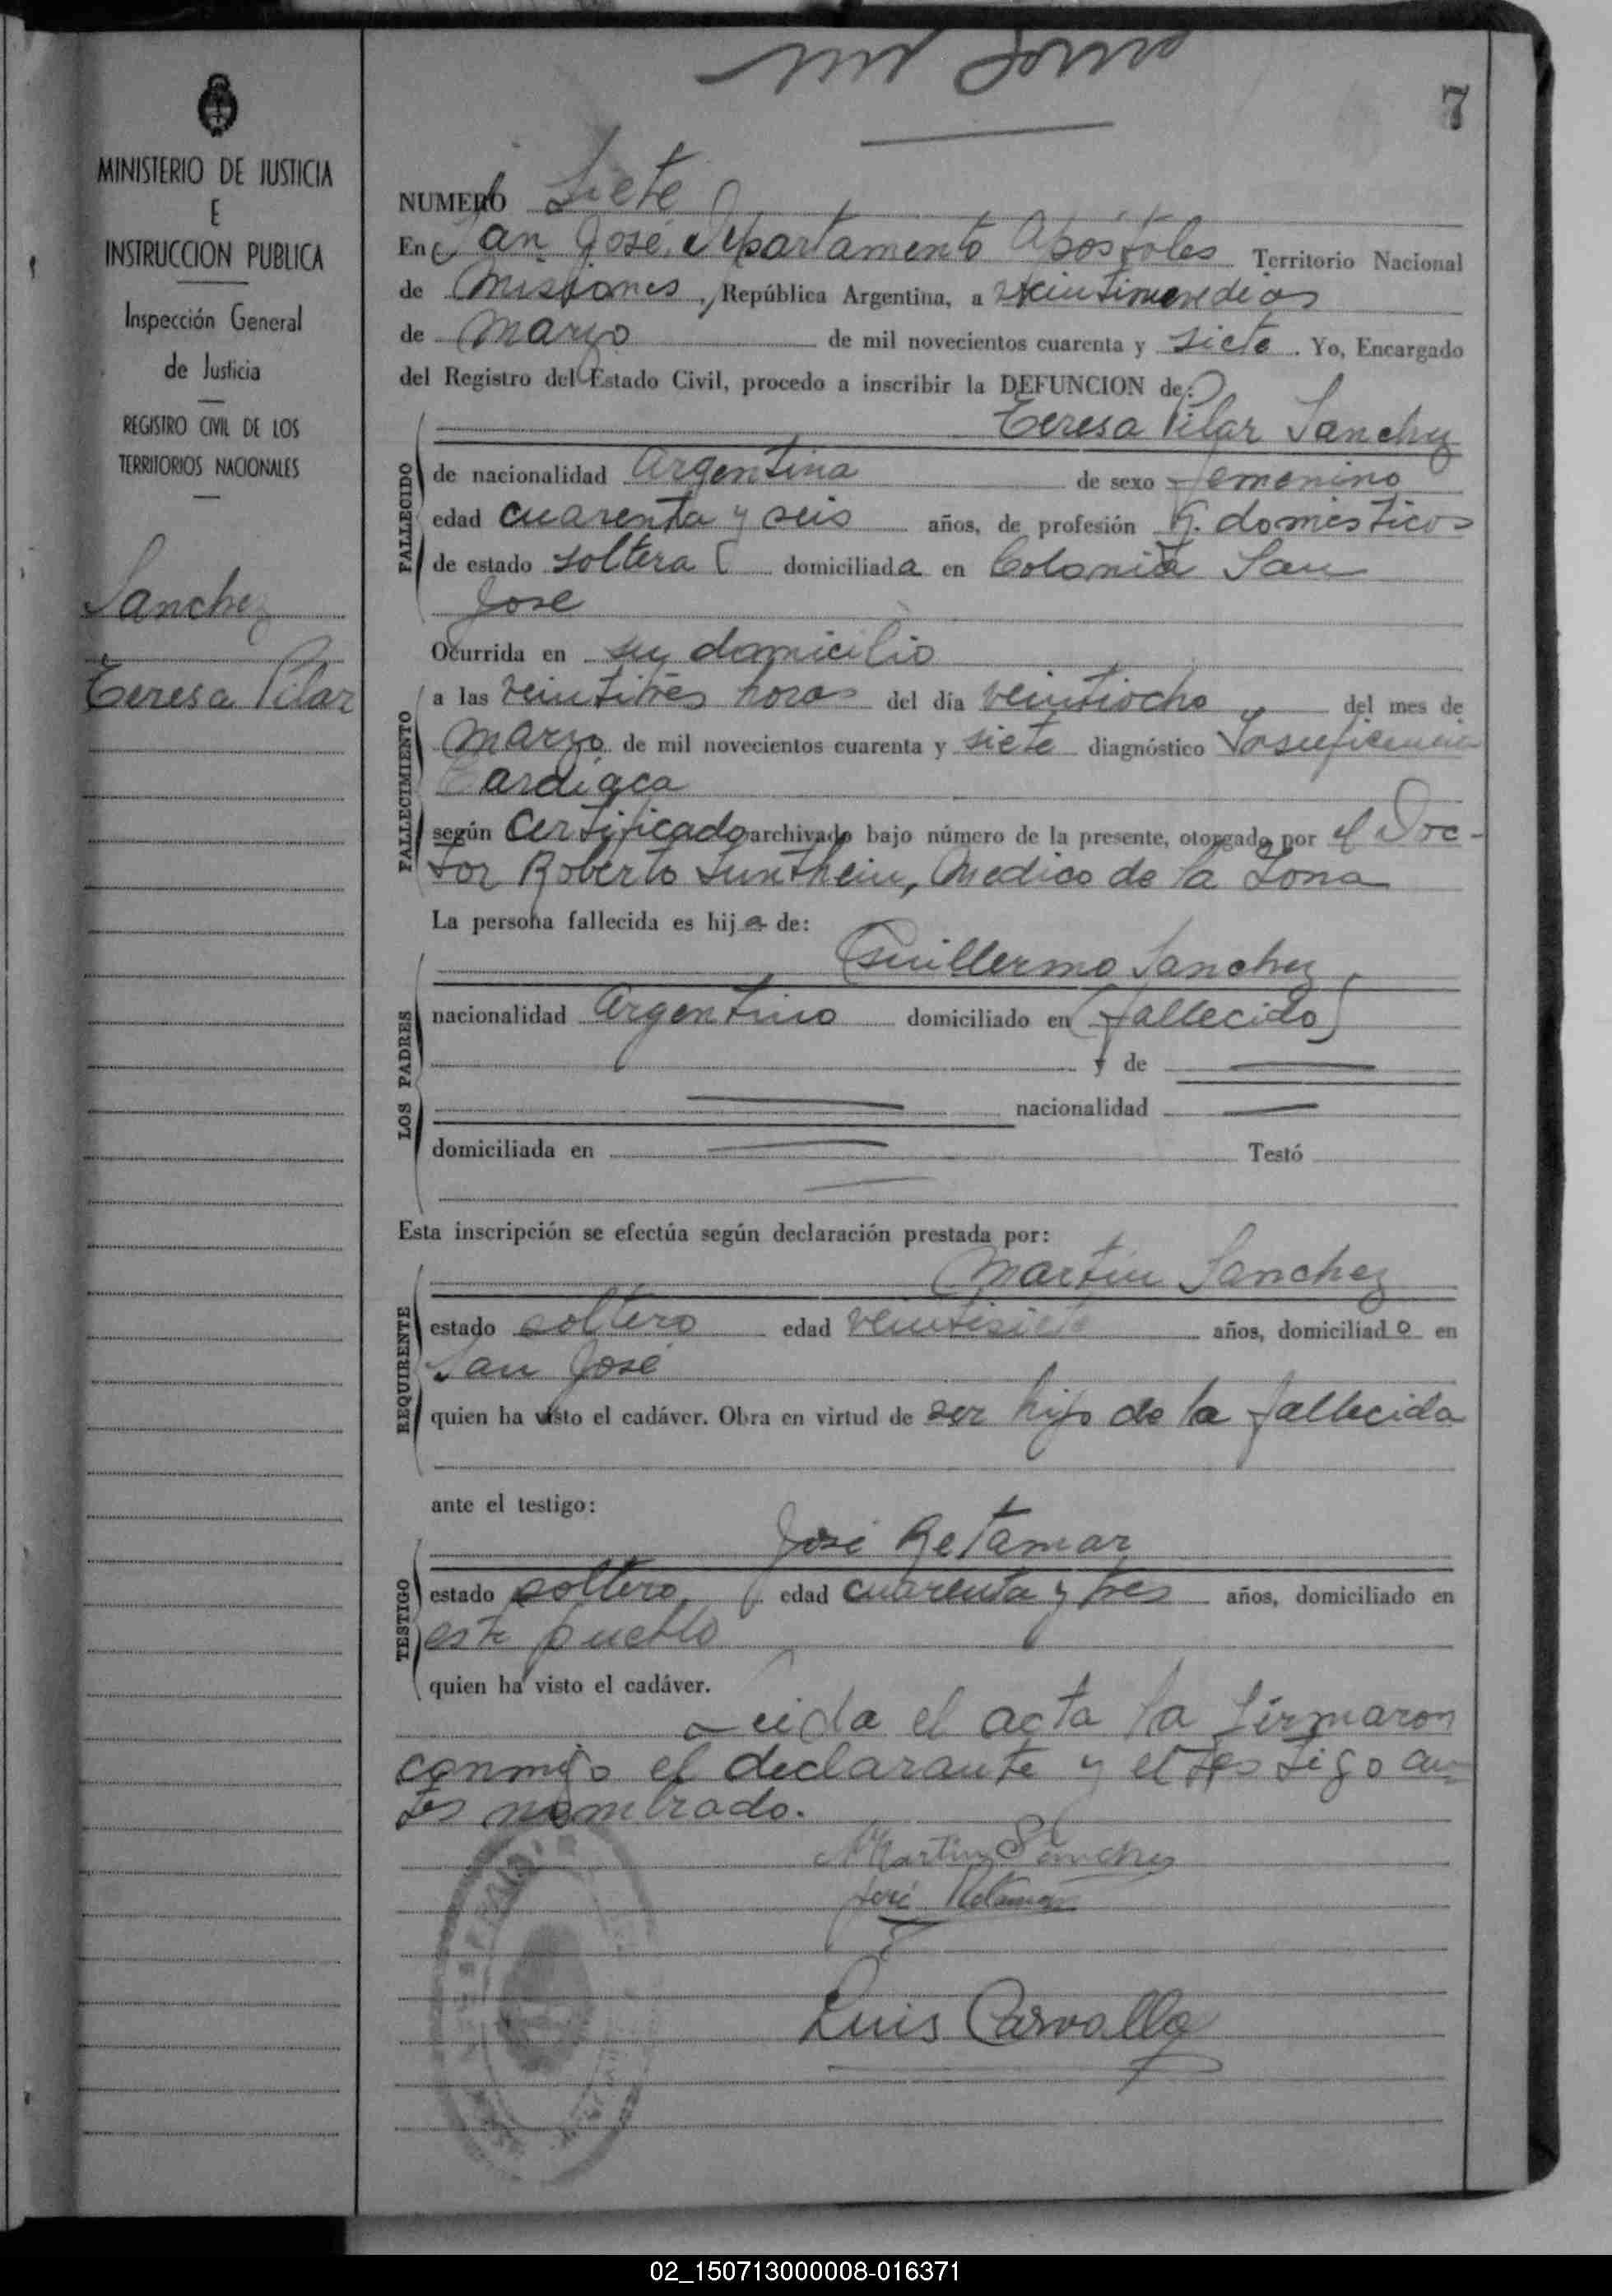 7
MINISTERIO DE JUSTICIA
E
INSTRUCCION PUBLICA
Inspección General
de Justicia
REGISTRO CIVIL DE LOS
TERRITORIOS NACIONALES
Sanchez
Teresa Pilar
NUMERO Siete
En San José, Departamento Apóstoles Territorio Nacional
de Misiones, República Argentina, a veintinueve dias
de Marzo de mil novecientos cuarenta y siete. Yo, Encargado
del Registro del Estado Civil, procedo a inscribir la DEFUNCION de:
Teresa Pilar Sanchez
FALLECIDO
de nacionalidad Argentina de sexo femenino
edad cuarenta y seis años, de profesión Q. domesticos
de estado soltera domiciliada en Colonia San
José
Ocurrida en su domicilio
FALLECIMIENTO
a las veintitrés horas del día veintiocho del mes de
Marzo de mil novecientos cuarenta y siete diagnóstico Insuficiencia
Cardiaca
según Certificado archivado bajo número de la presente, otorgado por el Doc-
tor Roberto Sunthein, Medico de la Zona
La persona fallecida es hija de:
LOS PADRES
Guillermo Sanchez
nacionalidad Argentino domiciliado en (fallecido)
y de
nacionalidad
domiciliada en Testó
Esta inscripción se efectúa según declaración prestada por:
REQUIRENTE
Martín Sanchez
estado soltero edad veintisiete años, domiciliado en
San José
quien ha visto el cadáver. Obra en virtud de ser hijo de la fallecida
ante el testigo:
TESTIGO
José Retamar
estado soltero, edad cuarenta y tres años, domiciliado en
este pueblo
quien ha visto el cadáver.
Leida el acta la firmaron
conmigo el declarante y el testigo an-
tes nombrado.
Martin Sanchez
José Retamar
Luis Carvallo
02_150713000008-016371